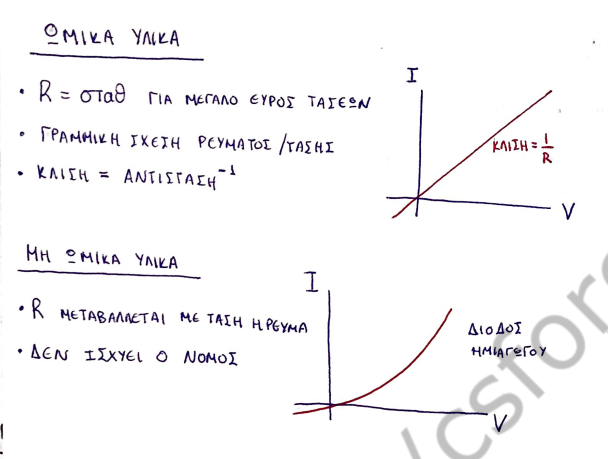 ΩΜΙΚΑ ΥΛΙΚΑ
• R = σταθ ΓΙΑ ΜΕΓΑΛΟ ΕΥΡΟΣ ΤΑΣΕΩΝ
• ΓΡΑΜΜΙΚΗ ΣΧΕΣΗ ΡΕΥΜΑΤΟΣ / ΤΑΣΗΣ
• ΚΛΙΣΗ = ΑΝΤΙΣΤΑΣΗ⁻¹
I
ΚΛΙΣΗ = 1/R
V
ΜΗ ΩΜΙΚΑ ΥΛΙΚΑ
• R ΜΕΤΑΒΑΛΛΕΤΑΙ ΜΕ ΤΑΣΗ Η ΡΕΥΜΑ
• ΔΕΝ ΙΣΧΥΕΙ Ο ΝΟΜΟΣ
I
ΔΙΟΔΟΣ
ΗΜΙΑΓΩΓΟΥ
V
/csfore